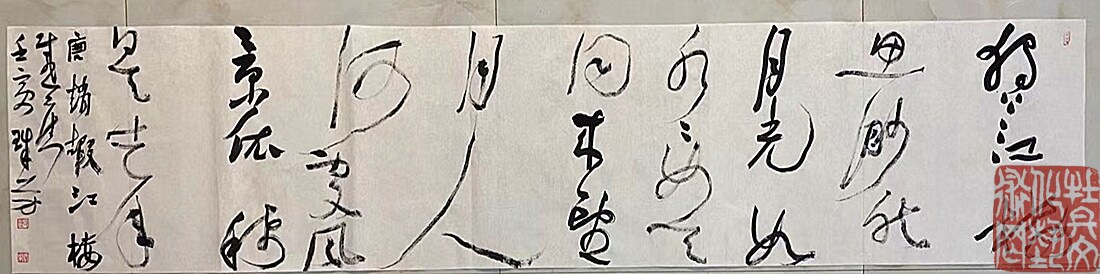 独上江楼
思渺然
月光如
水〻如天
同来望
月人
何處风
景依稀
去年
唐赵嘏江楼
壬寅